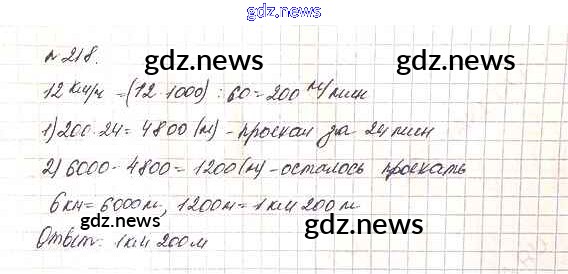 gdz.news
№ 218.
gdz.news gdz.news
12 км/ч = (12·1000) : 60 = 200 м/мин
1) 200·24 = 4800 (м) - проехал за 24 мин
2) 6000 - 4800 = 1200 (м) - осталось проехать
6 км = 6000 м, 1200 м = 1 км 200 м
gdz.news gdz.news
Ответ: 1 км 200 м